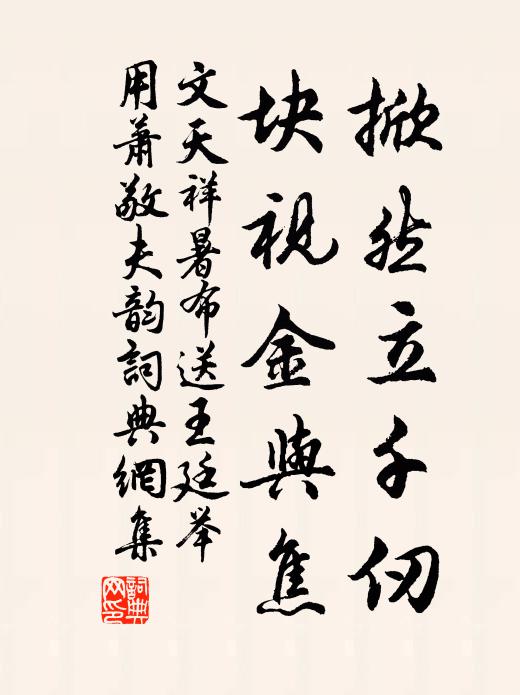 掀然立千仞
块视金與焦
文天祥暑布送王廷举
用萧敬夫韵詞典網集
詞典网印